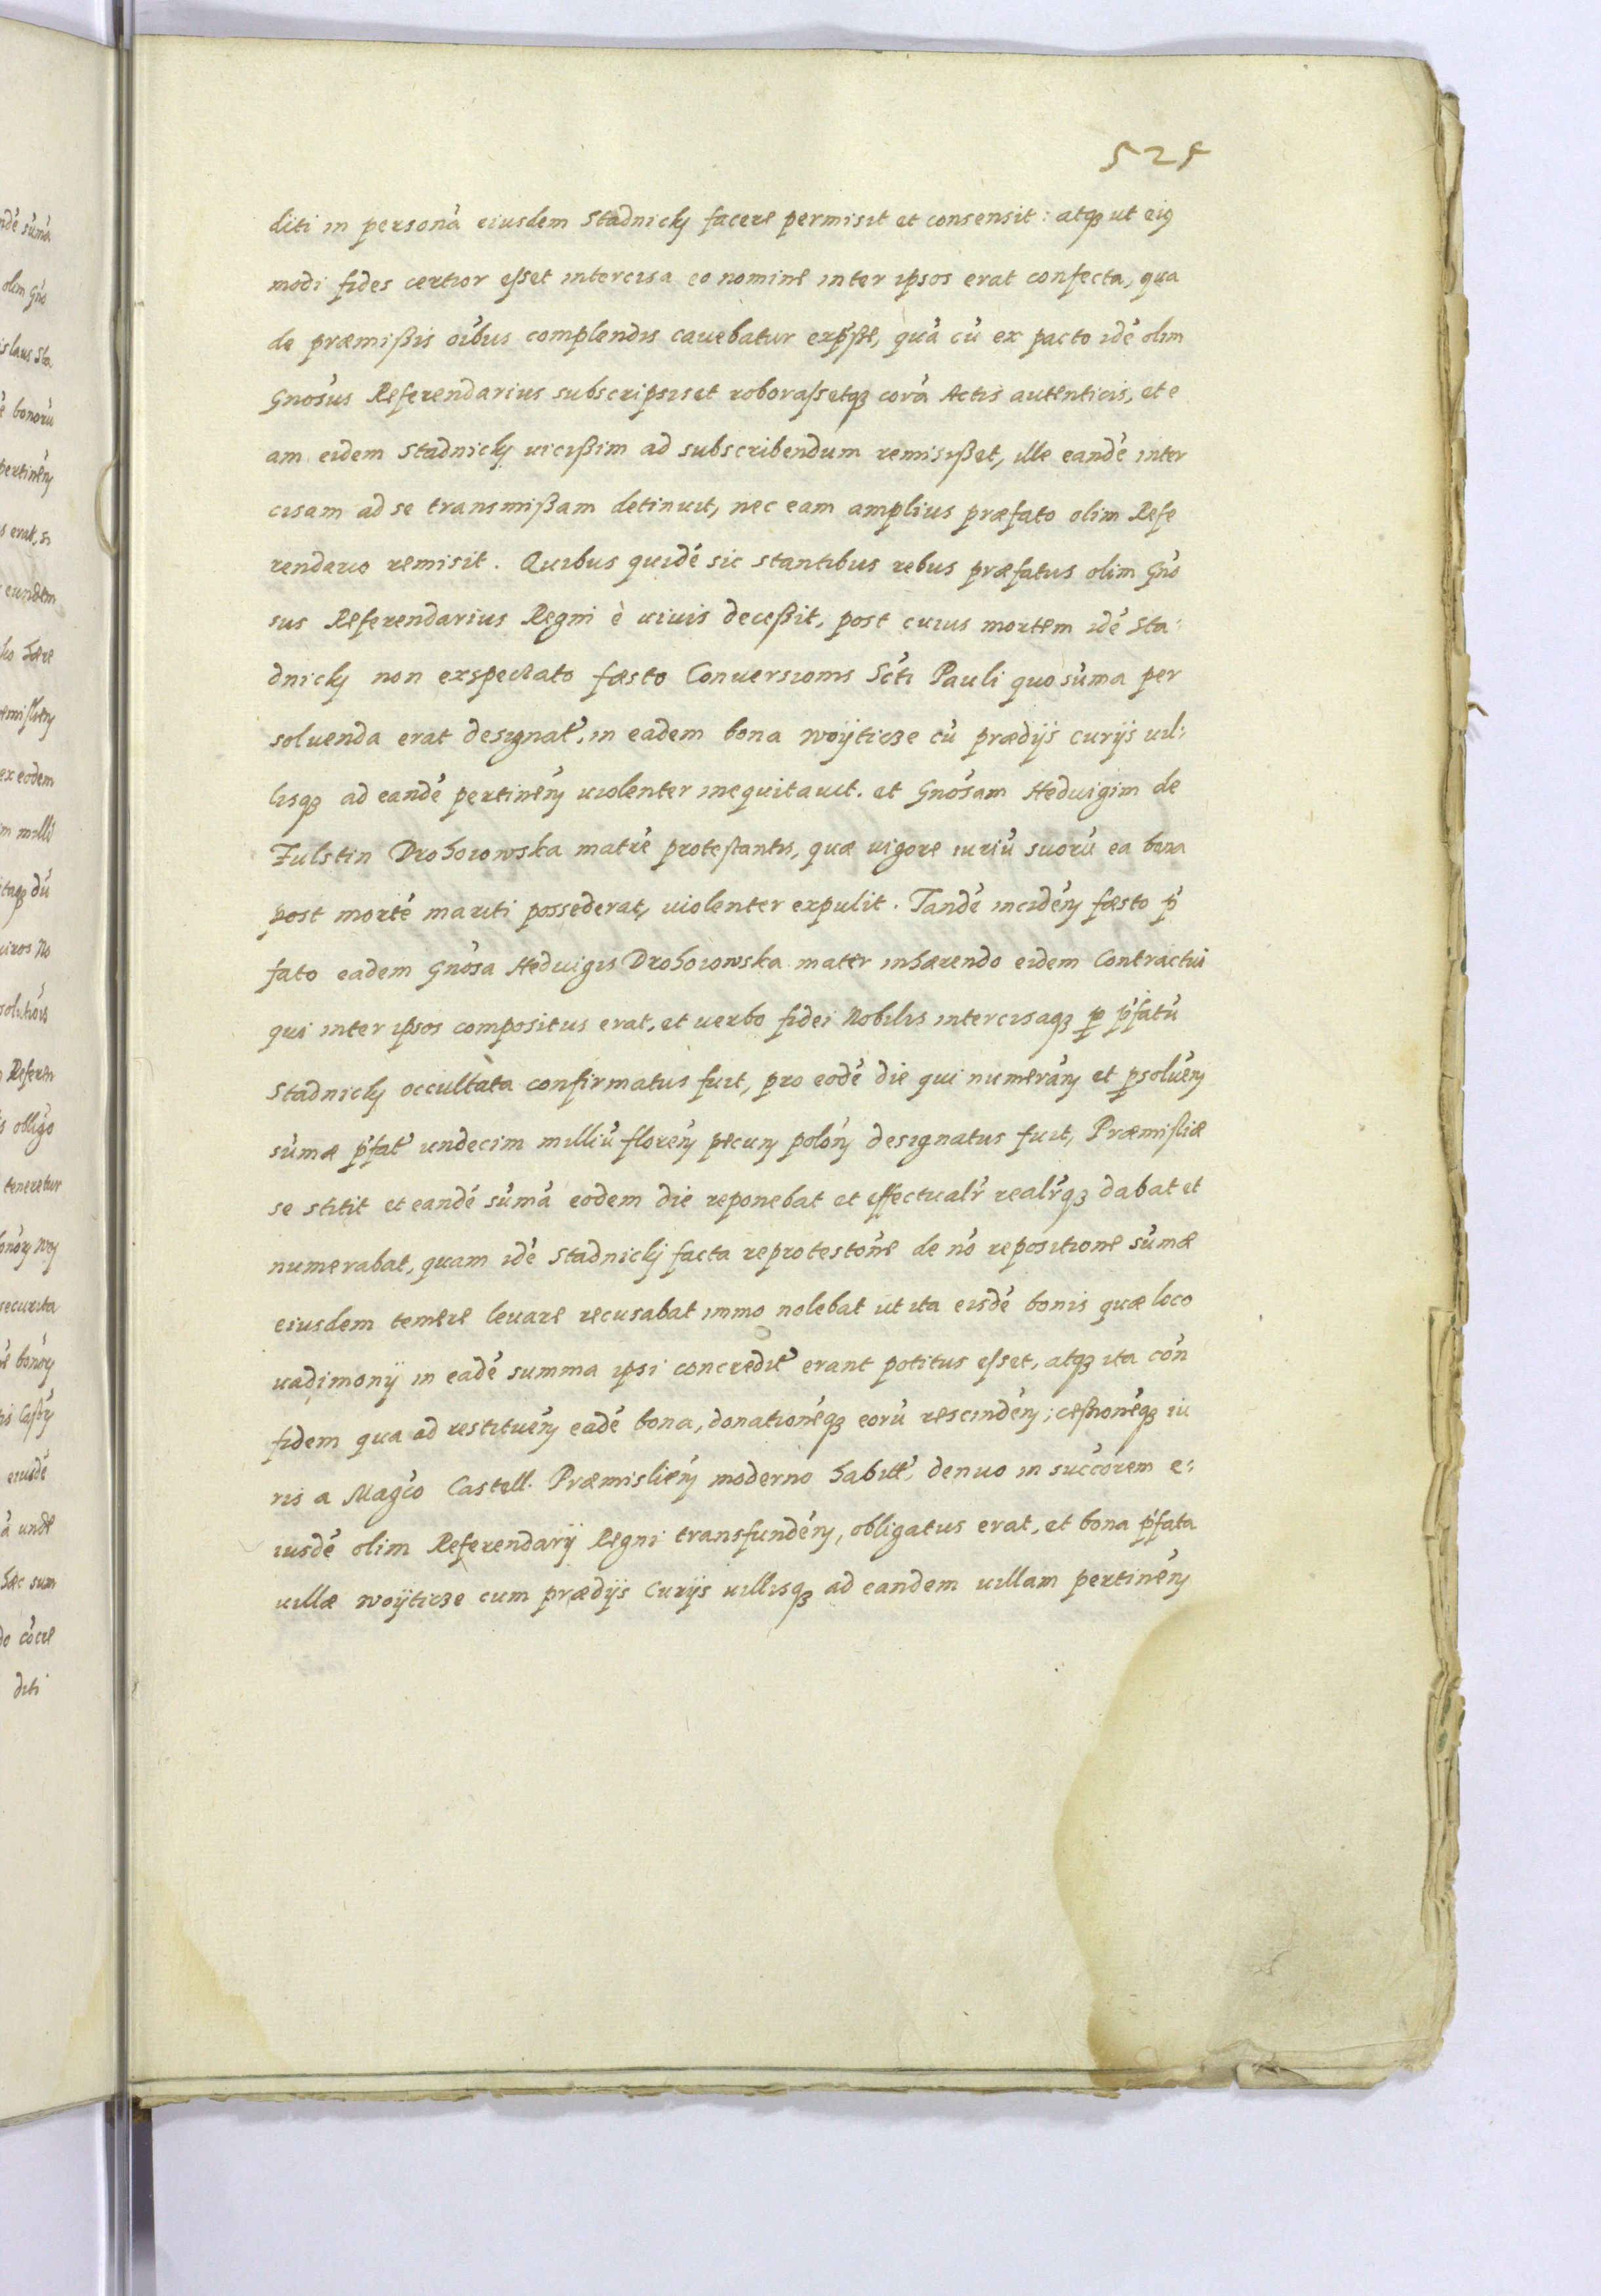 525
diti in persona᷃ eiusdem Stadnickj facere permisit et consensit: atqꝫ ut eiꝰ
modi fides certior eſset intercisa eo nomine inter ipsos erat confecta, qua
de præmißis oi᷃bus complendis cauebatur exp᷃ſse, qua᷃ cu᷃ ex pacto ide᷃ olim
Gno᷃sus Referendarius subscripsiset roboraſsetqꝫ cora᷃ Actis autenticis, et e
am eidem Stadnickj uicißim ad subscribendum remisißet, ille eande᷃ inter
cisam ad se transmißam detinuit, nec eam amplius præfato olim Refe
rendario remisit. Quibus quide᷃ sic stantibus rebus præfatus olim Gno᷃
sus Referendarius Regni è uiuis deceßit, post cuius mortem ide᷃ Sta:
dnickj non exspectato fæsto Conuersionis Sc᷃ti Pauli quo su᷃ma per
soluenda erat designat᷃, in eadem bona Woÿticze cu᷃ prædijs curijs uil:
lisqꝫ ad eande᷃ pertine᷃ꝝ uiolenter inequitauit. et Gno᷃sam Heduigim de
Fulstin Drohoiowska matre᷃ proteſtantis, quæ uigore iuriu᷃ suoru᷃ ea bona
post morte᷃ mariti possederat, uiolenter expulit. Tande᷃ incide᷃ꝝ fæsto p᷃
fato eadem Gno᷃sa Heduigis Drohoiowska mater inhærendo eidem Contractui
qui inter ipsos compositus erat, et uerbo fidei Nobilis intercisaqꝫ ꝑ p᷃fatu᷃
Stadnickj occultata confirmatus fuit, pro eode᷃ die qui numera᷃ꝝ et ꝑsolue᷃ꝝ
su᷃mæ p᷃fat᷃ undecim milliu᷃ flore᷃ꝝ pecuꝝ polo᷃ꝝ designatus fuit, Præmiſliæ
se stitit et eande᷃ su᷃ma᷃ eodem die reponebat et effectualr᷃ realr᷃qꝫ dabat et
numerabat, quam ide᷃ Stadnickj facta reprotesto᷃ne de no᷃ repositione su᷃mæ
eiusdem temere leuare recusabat immo nolebat ut ita eisde᷃ bonis quæ loco
uadimonij in eade᷃ summa ipsi concredit᷃ erant potitus eſset, atqꝫ ita co᷃n
fidem qua ad restitue᷃ꝝ eade᷃ bona, donatione᷃qꝫ eoru᷃ rescinde᷃ꝝ; ceſsione᷃qꝫ iu
ris a Mag᷃co Castell. Præmislie᷃ꝝ moderno habit᷃, denuo in succo᷃rem e:
iusde᷃ olim Referendarij Regni transfunde᷃ꝝ, obligatus erat, et bona p᷃fata
uillæ Woÿticze cum prædijs Curijs uillisqꝫ ad eandem uillam pertine᷃ꝝ